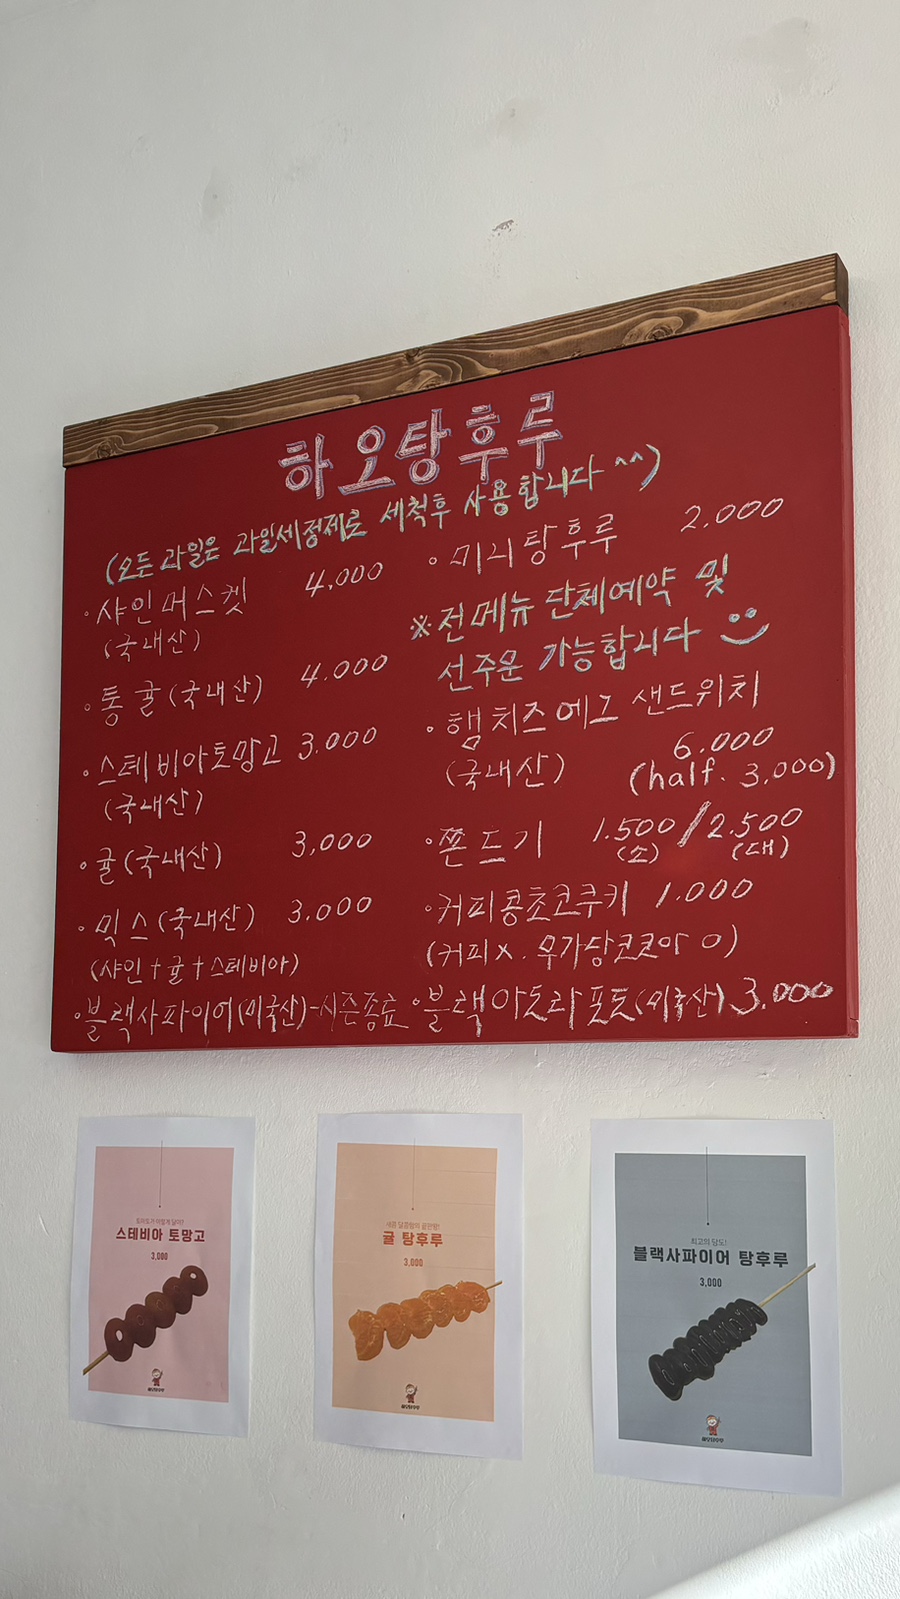 하오탕후루
(모든 과일은 과일세정제로 세척후 사용합니다 ^^)
·샤인머스켓 4,000
(국내산)
·통귤(국내산) 4.000
·스테비아토망고 3.000
(국내산)
·귤(국내산) 3,000
·믹스(국내산) 3.000
(샤인+귤+스테비아)
·블랙사파이어(미국산)-시즌종료
·미니탕후루 2.000
※전메뉴 단체예약 및
선주문 가능합니다
·햄치즈에그 샌드위치
(국내산) 6.000
(half. 3,000)
·쫀드기 1.500/2.500
(소) (대)
·커피콩초코쿠키 1.000
(커피x. 무가당코코아 o)
·블랙아토라포도(미국산) 3.000
토마토가 이렇게 달아?
스테비아 토망고
3,000
하오탕후루
새콤 달콤함의 끝판왕!
귤 탕후루
3,000
하오탕후루
최고의 당도!
블랙사파이어 탕후루
3,000
하오탕후루